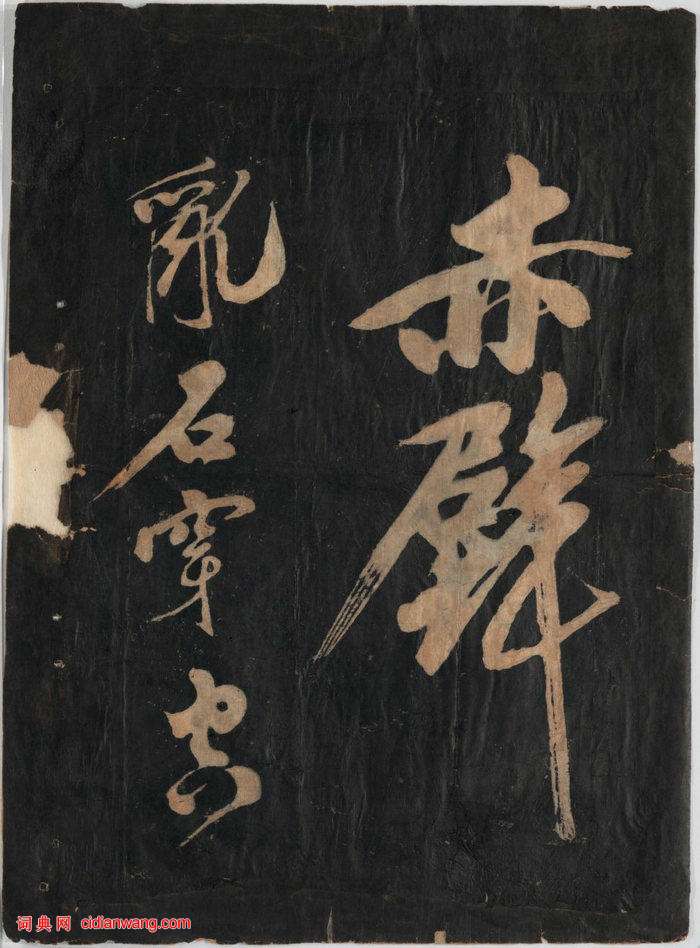 赤壁
亂石穿空
词典网 cidianwang.com